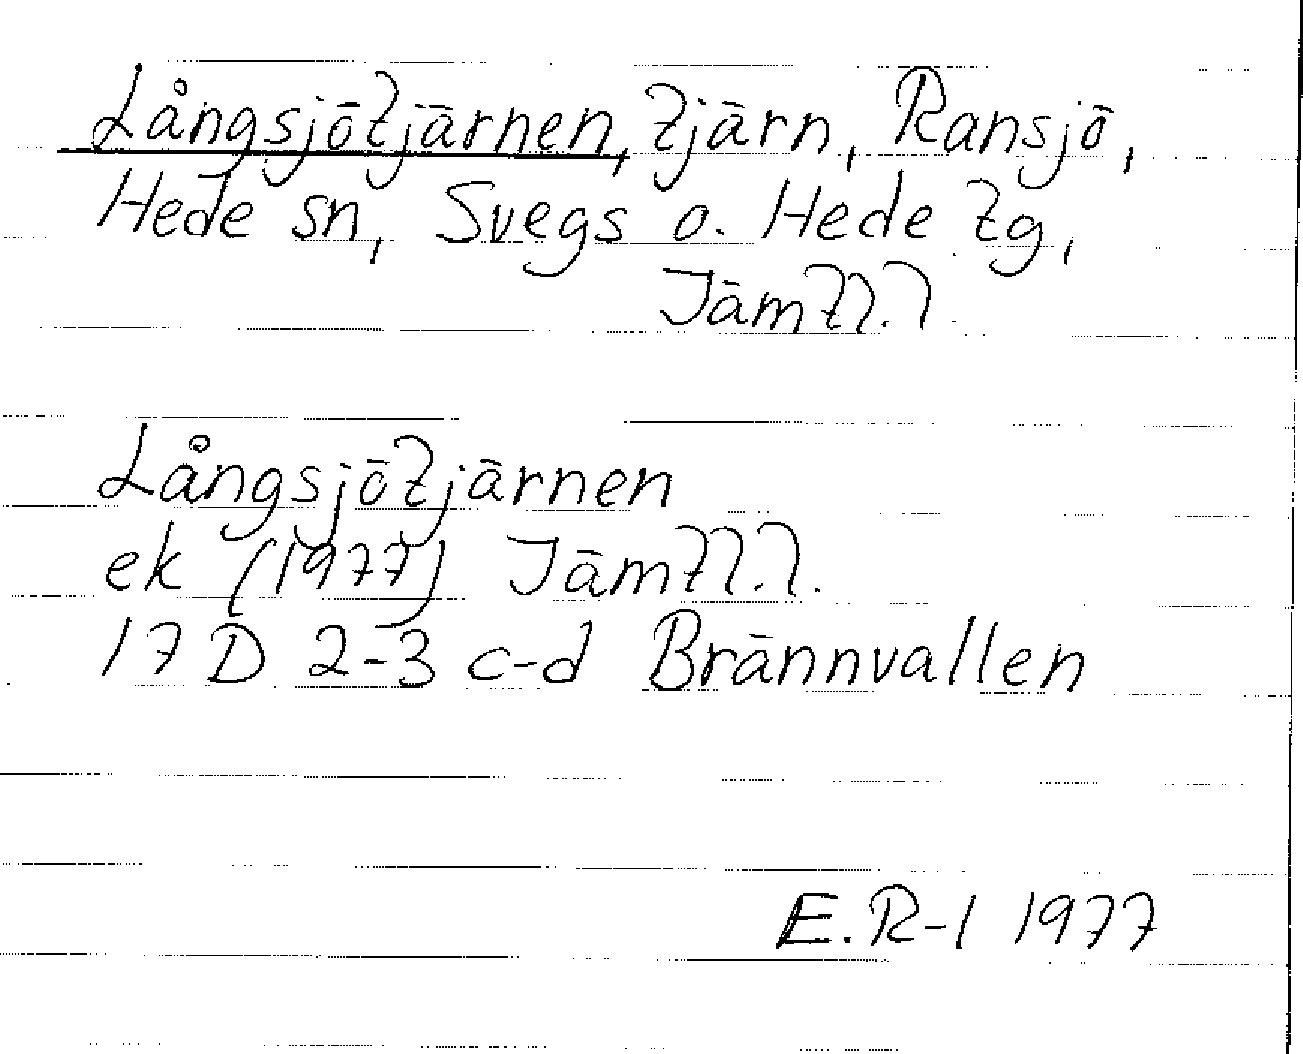 Långsjötjärnen, tjärn, Ransjö,
Hede sn, Svegs o. Hede tg,
Jämtl.l.
Långsjötjärnen
ek (1977) Jämtl.l.
17 D 2-3 c-d Brännvallen
E.R-l 1977